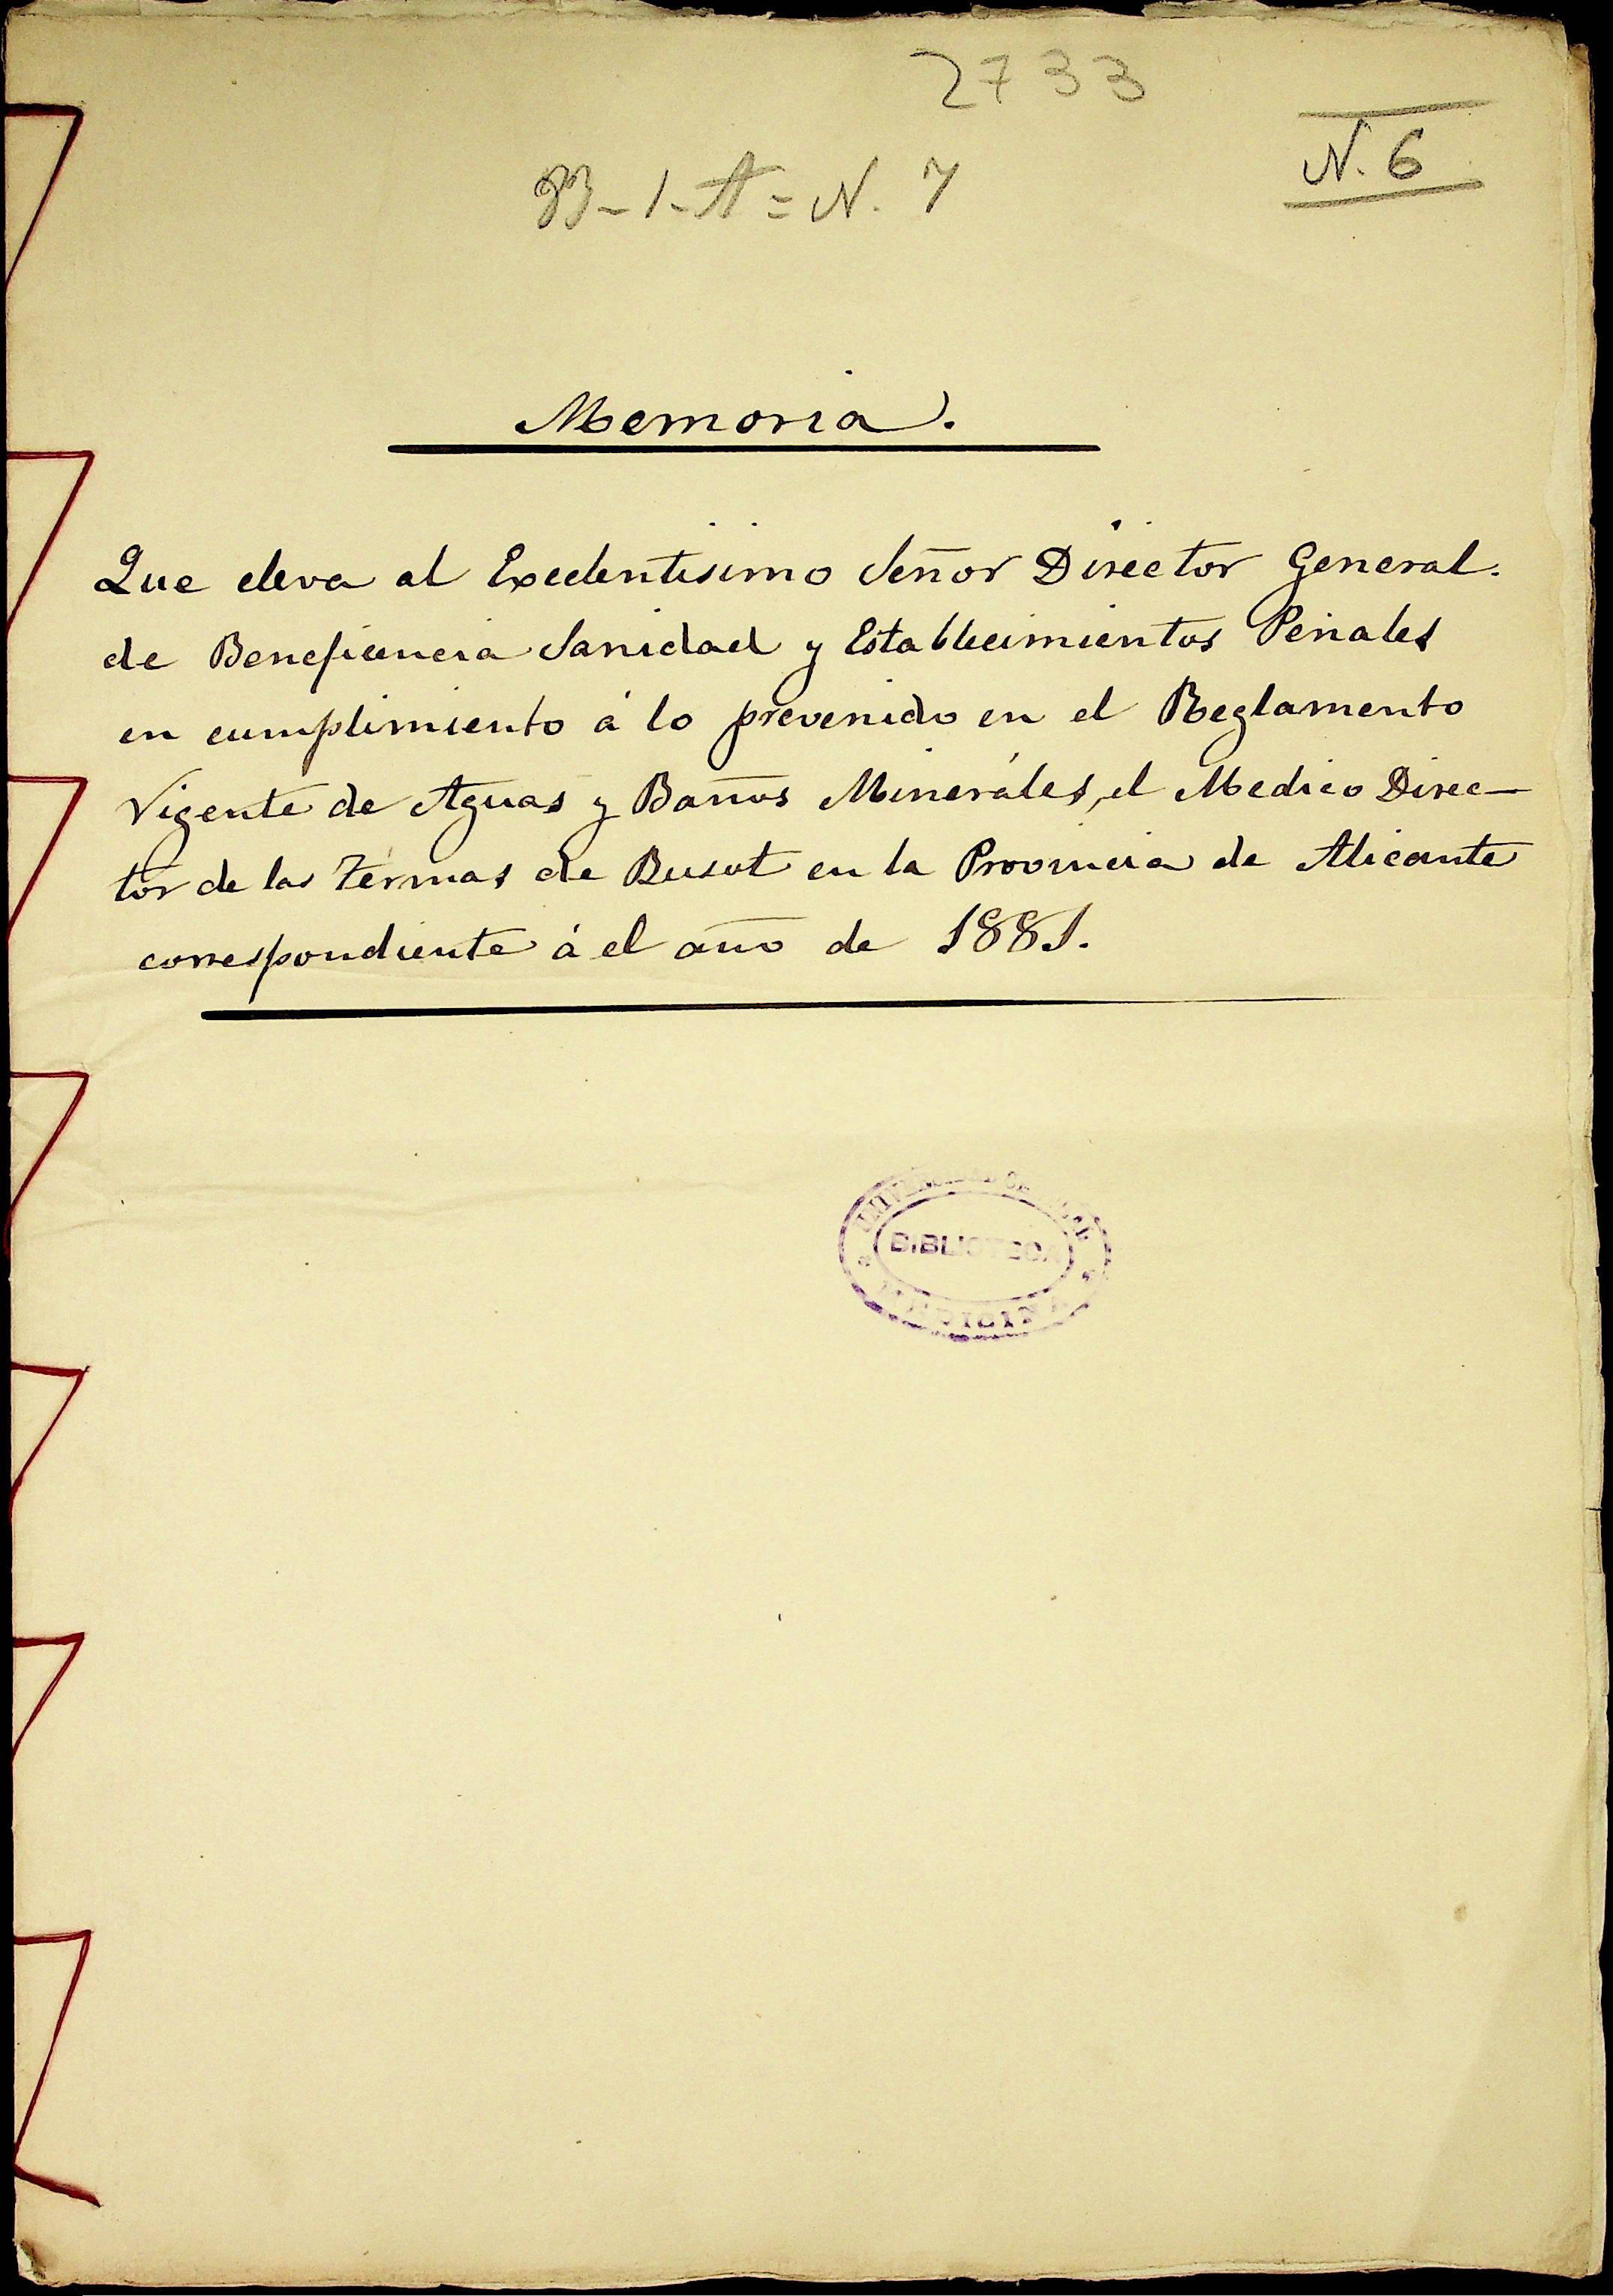 2733
N. 6
B-1-A = N. 7
Memoria.
Que eleva al Excelentisimo Señor Director General.
de Beneficencia Sanidad y Establecimientos Penales
en cumplimiento á lo prevenido en el Reglamento
Vigente de Aguas y Baños Minerales, el Medico Direc-
tor de las Termas de Busot en la Provincia de Alicante
correspondiente á el año de 1881.
BIBLIOTECA
MEDICINA